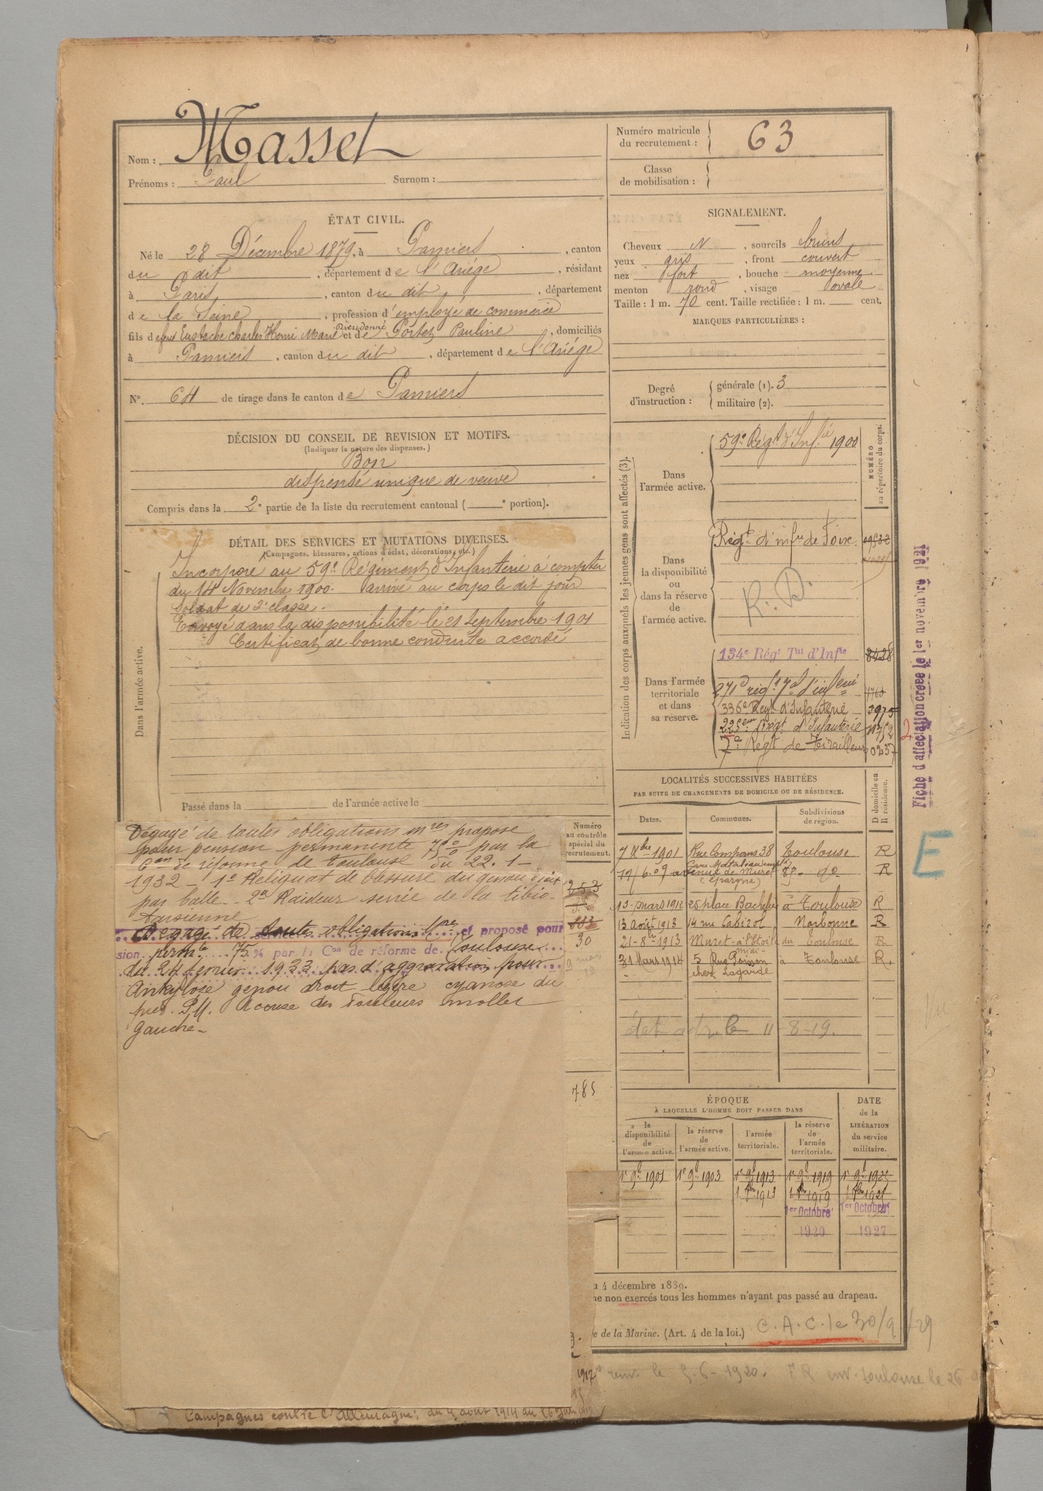 Nom : Masset
Prénoms : Paul Surnom :
Numéro matricule du recrutement : 63
Classe de mobilisation :
ÉTAT CIVIL.
Né le 28 Décembre 1879, à Pamiers, canton
du dit, département de l'Ariège, résidant
à Paris, canton du dit, département
de la Seine, profession d'employé de commerce
fils de feu Eustache Charles Henri Marie Dieudonné et de Pauline, domiciliés
à Pamiers, canton du dit, département de l'Ariège
N°. 64 de tirage dans le canton de Pamiers
SIGNALEMENT.
Cheveux N, sourcils bruns
yeux gris, front couvert
nez fort, bouche moyenne
menton rond, visage ovale
Taille : 1 m. 70 cent. Taille rectifiée : 1 m. cent.
MARQUES PARTICULIÈRES :
Degré d'instruction : générale (1). 3
militaire (2).
DÉCISION DU CONSEIL DE REVISION ET MOTIFS.
(Indiquer la nature des dispenses.)
Bon
dispensé unique de veuve
Compris dans la 2e partie de la liste du recrutement cantonal ( e portion).
DÉTAIL DES SERVICES ET MUTATIONS DIVERSES.
(Campagnes, blessures, actions d'éclat, décorations, etc.)
Dans l'armée active.
Incorporé au 59e Régiment d'Infanterie à compter
du 14 Novembre 1900. Arrivé au corps le dit jour
Soldat de 2e classe.
Envoyé dans la disponibilité le 21 septembre 1901
Certificat de bonne conduite accordé
Passé dans la de l'armée active le
Dégagé de toutes obligations mres proposé
pour pension permanente 75% par la
Con de réforme de Toulouse du 22-1-
1932 – 1° Reliquat de blessure du genou
par balle. 2° Raideur serrée de la tibio-
tarsienne
Dégagé de toutes obligations mres et proposé pour
sion permte 75% par la Con de réforme de Toulouse
du 24 février 1933 pas d'aggravation pour
Ankylose genou droit légère cyanose du
pied. Accuse des douleurs mollet
gauche -
Campagnes contre l'Allemagne, du 4 août 1914 au
Indication des corps auxquels les jeunes gens sont affectés (3).
NUMÉRO au répertoire du corps.
Dans l'armée active.
59e Régt d'Infie 1900
Dans la disponibilité ou dans la réserve de l'armée active.
Régt d'infie de Foix
R. D.
Dans l'armée territoriale et dans sa réserve.
134e Régt Tal d'Infie
271e régt d'infie
336e Régt d'Infanterie
225eme Régt d'Infanterie
7e Régt de Tirailleurs
Fiche d'affectation créée le 1er novembre 1921
E
LOCALITÉS SUCCESSIVES HABITÉES
PAR SUITE DE CHANGEMENTS DE DOMICILE OU DE RÉSIDENCE.
Dates. Communes. Subdivisions de région. D domicile ou R résidence.
7 8bre 1901 Rue Compans 38 Toulouse R
avenue de Muret do R
13 mars 1911 25 place à Toulouse R
13 août 1913 14 rue Narbonne R
21-8bre 1913 Muret Toulouse R
31 Mars 1914 5 Rue chez Lagarde à Toulouse R.
Numéro au contrôle spécial du recrutement.
30
785
ÉPOQUE
À LAQUELLE L'HOMME DOIT PASSER DANS
la disponibilité de l'armée active. la réserve de l'armée active. l'armée territoriale. la réserve de l'armée territoriale. DATE de la LIBÉRATION du service militaire.
1er 9bre 1901 1er 9bre 1903 1er 9bre 1913 1er 9bre 1919
1er Octobre 1er Octobre
1920 1927
4 décembre 1889.
ne non exercés tous les hommes n'ayant pas passé au drapeau.
de la Marine. (Art. 4 de la loi.)
C.A.C. le 30/9/29
le 5-6-1920. Toulouse le 26